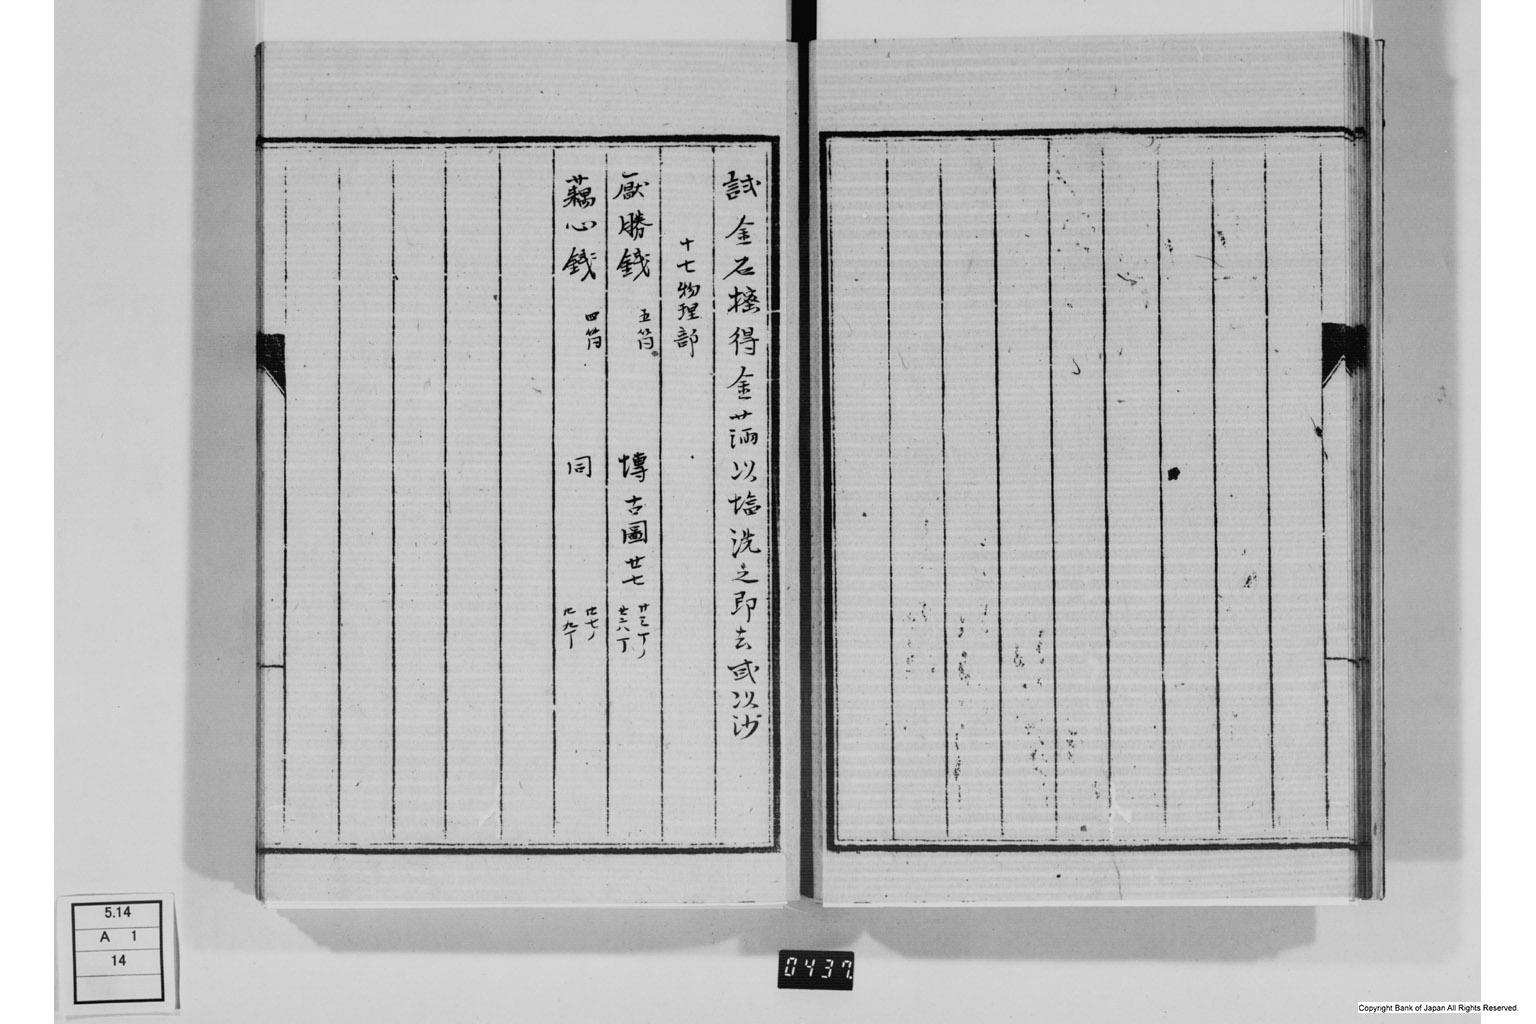 試金石擦得金滿以塩洗之即去或以沙
十七物理部
厭勝錢 五箇 博古圖廿七 廿三丁 廿六八丁
藕心錢 四箇 同 廿七丁 廿九丁
5.14
A 1
14
0437
Copyright Bank of Japan All Rights Reserved.